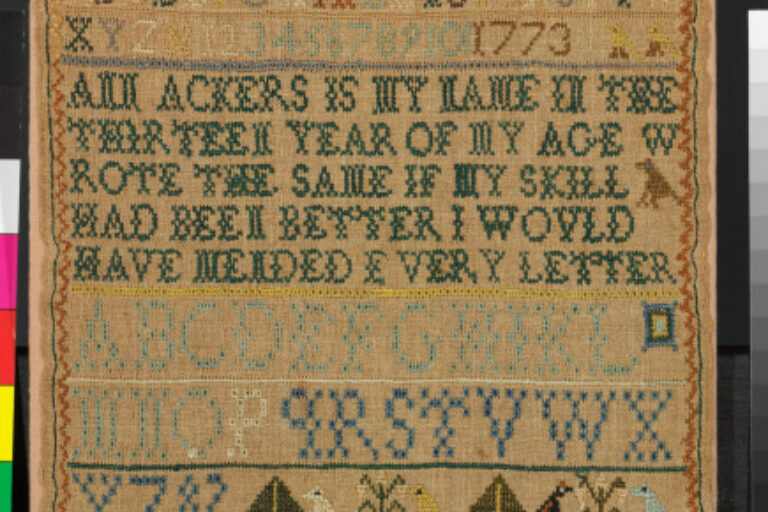 X Y Z & 1 2 3 4 5 6 7 8 9 10 11 1773
ANN ACKERS IS MY NAME IN THE
THIRTEEN YEAR OF MY AGE W
ROTE THE SAME IF MY SKILL
HAD BEEN BETTER I WOVLD
HAVE MENDED EVERY LETTER
A B C D E F G H I K L
M N O P Q R S T V W X
Y Z &